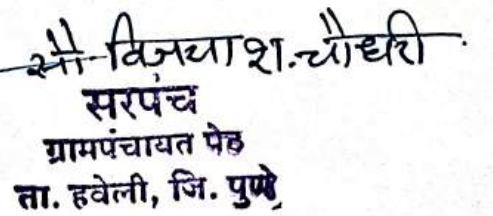 सौ विजया श. चौधरी
सरपंच
ग्रामपंचायत पेठ
ता. हवेली, जि. पुणे